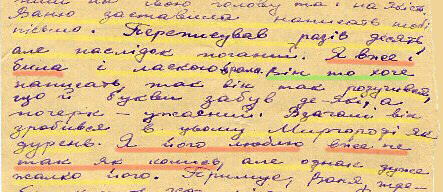 на свою голову та і на Явіст.
Ваню заставила написать тобі
письмо. Переписував разів десять
але наслідок поганий. Я вже і
била і ласкою брала. Він то хоче
написать, так він так розучився
що й букви забув де-які, а
почерк – ужасний. Взагалі він
зробився в цьому Миргороді як
дурень. Я його люблю вже не
так як колись, але однак дуже
жалко його. Ваня жде